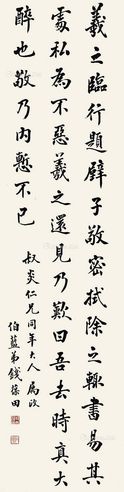 羲之臨行題壁子敬密拭除之輒書易其
處私為不惡羲之還見乃歎曰吾去時真大
醉也敬乃內慙不已
叔炎仁兄同年大人屬政
伯蓝弟錢葆田